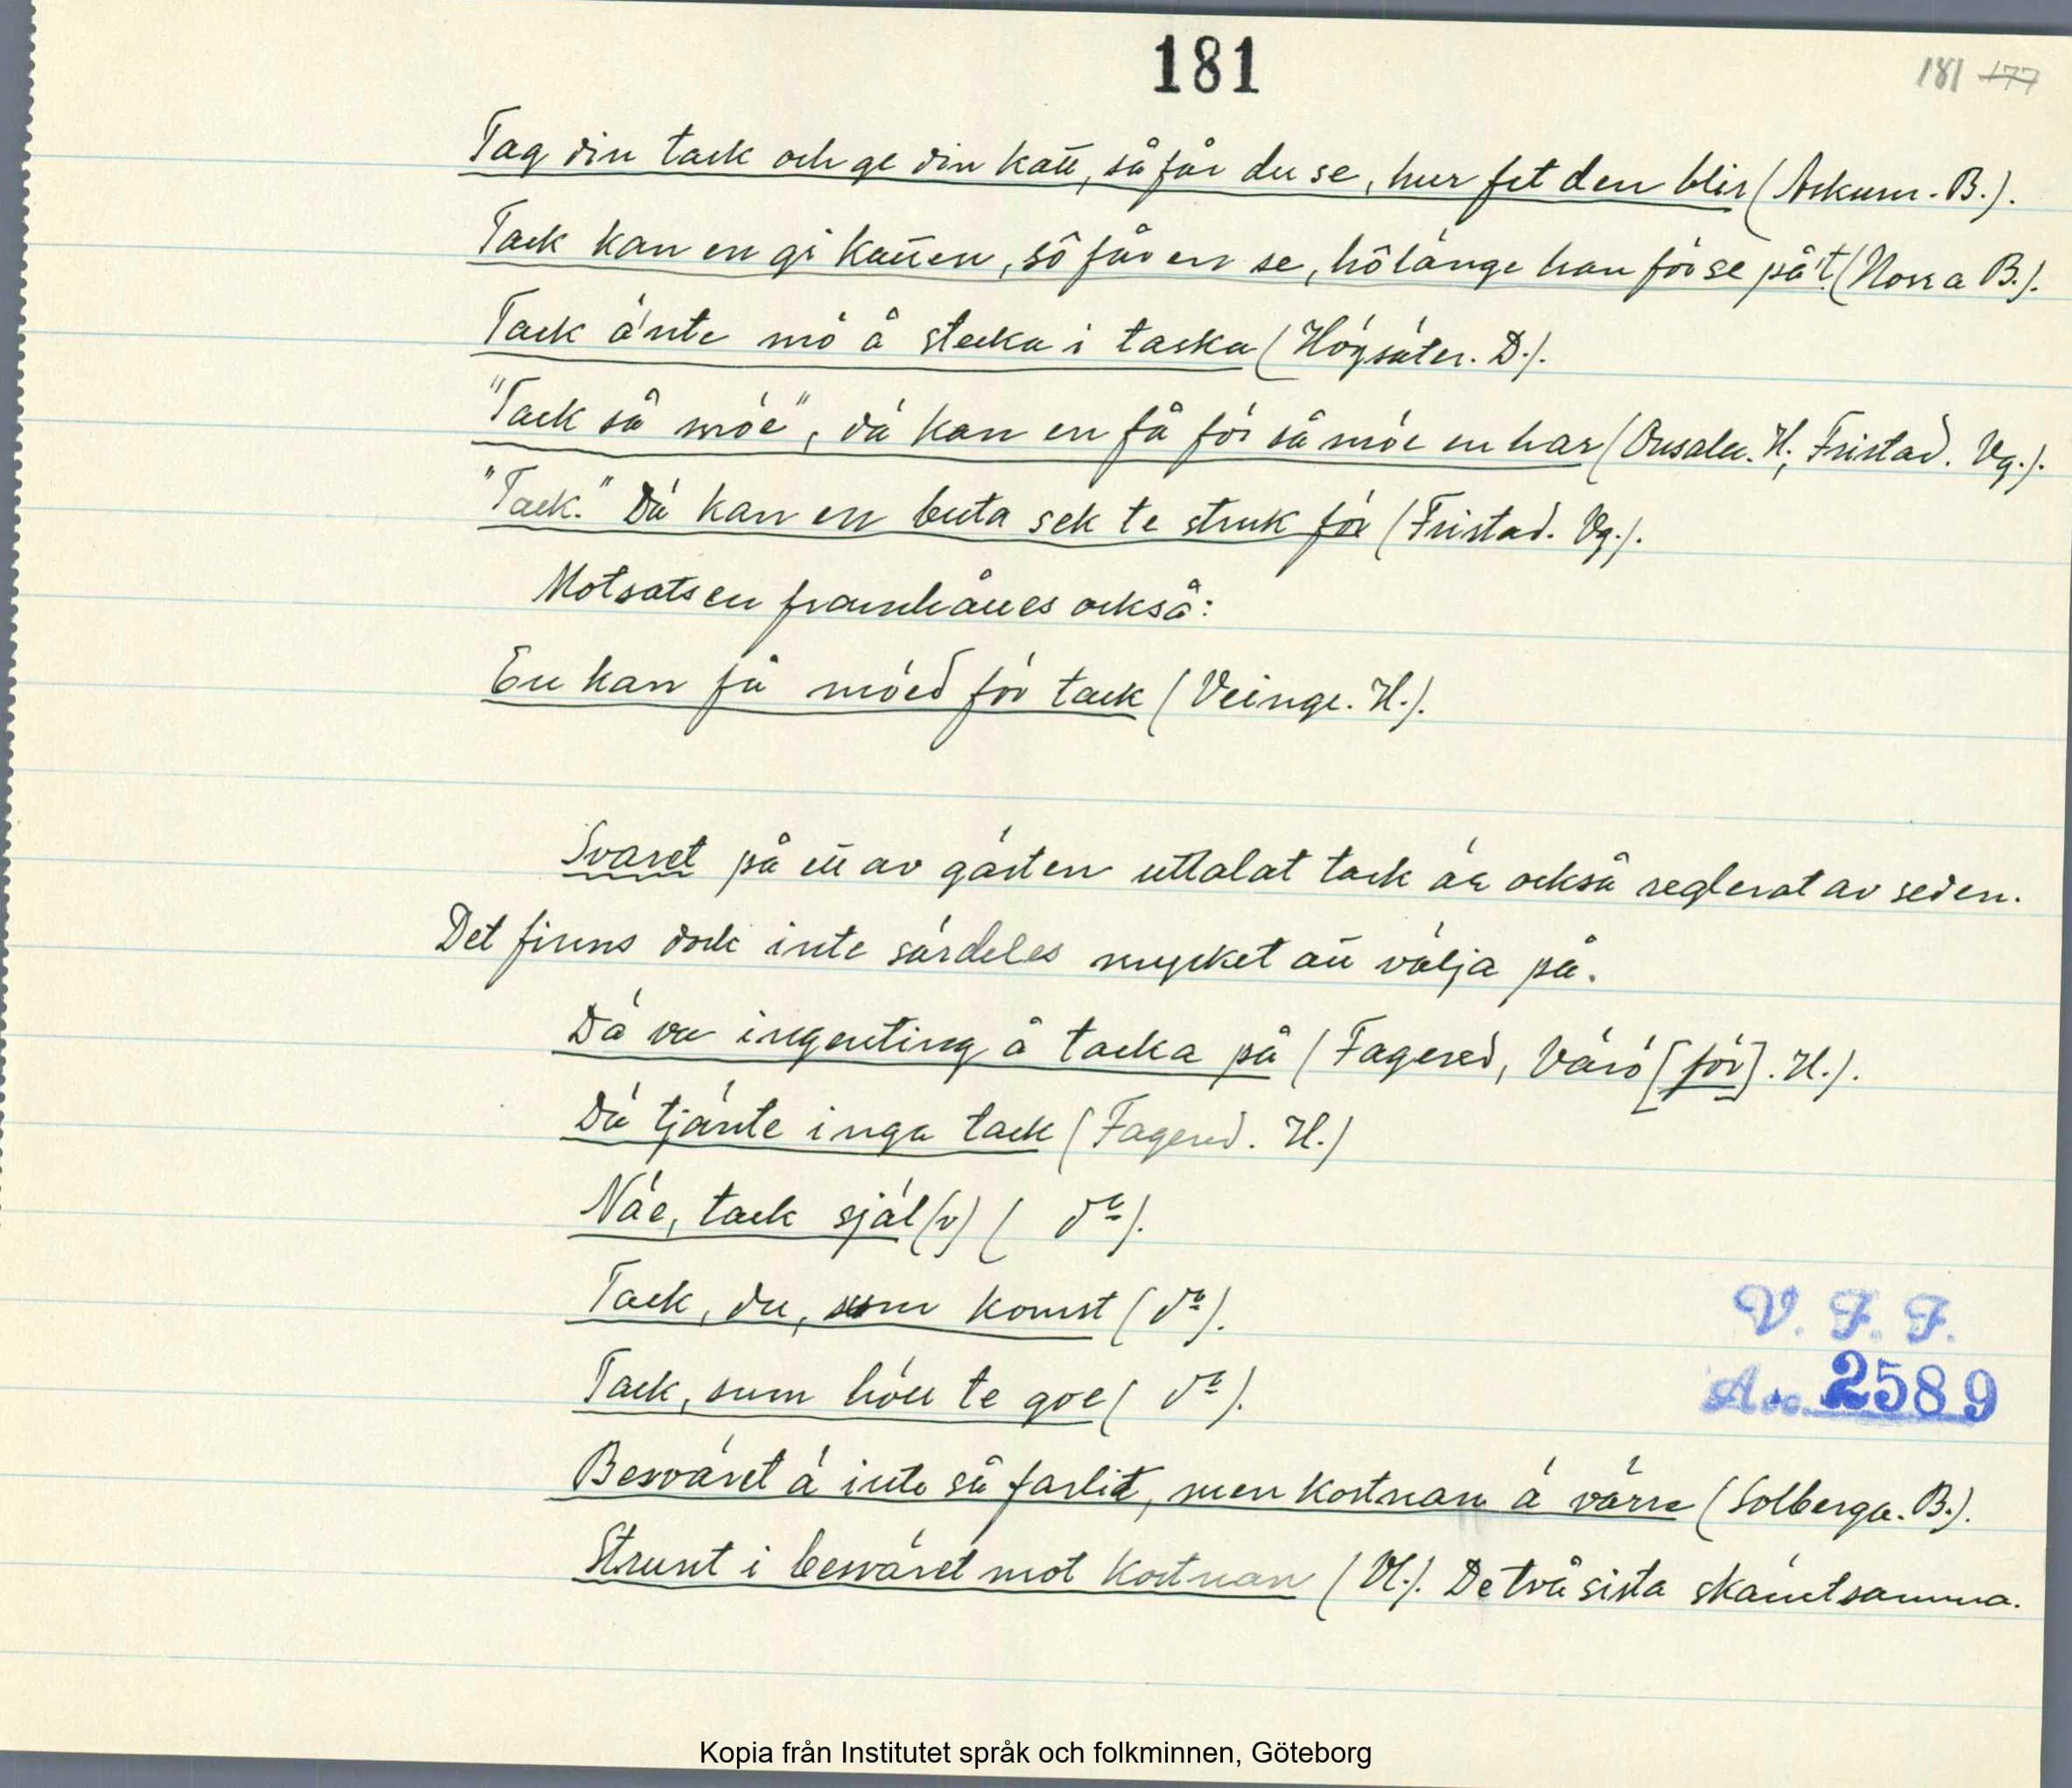 181
181 177
Tag din tack och ge din katt, så får du se, hur fet den blir (Askum. B.).
Tack kan en gi katten, sô får en se, hô länge han för se på't (Norra B.).
Tack ä'nte mö å stecka i taska (Högsäter. D.).
"Tack så möe", dä kan en få för så möe en har (Onsala. H., Fristad. Vg.).
"Tack." Dä kan en buta sek te struk för (Fristad. Vg.).
Motsatsen framhålles också:
En kan få möed för tack (Veinge. H.).
Svaret på ett av gästen uttalat tack är också reglerat av seden.
Det finns dock inte särdeles mycket att välja på.
Dä va ingenting å tacka på (Fagered, Värö [för]. H.).
Dä tjänte inga tack (Fagered. H.)
Näe, tack själ(v) ( do).
Tack, du, som komst (do).
Tack, sum höll te goe ( do).
Besväret ä inte så farlit, men kostnan ä värre (Solberga. B.).
Strunt i besväret mot kostnan (Vl.). De två sista skämtsamma.
V. F. F.
Acc. 2589
Kopia från Institutet språk och folkminnen, Göteborg